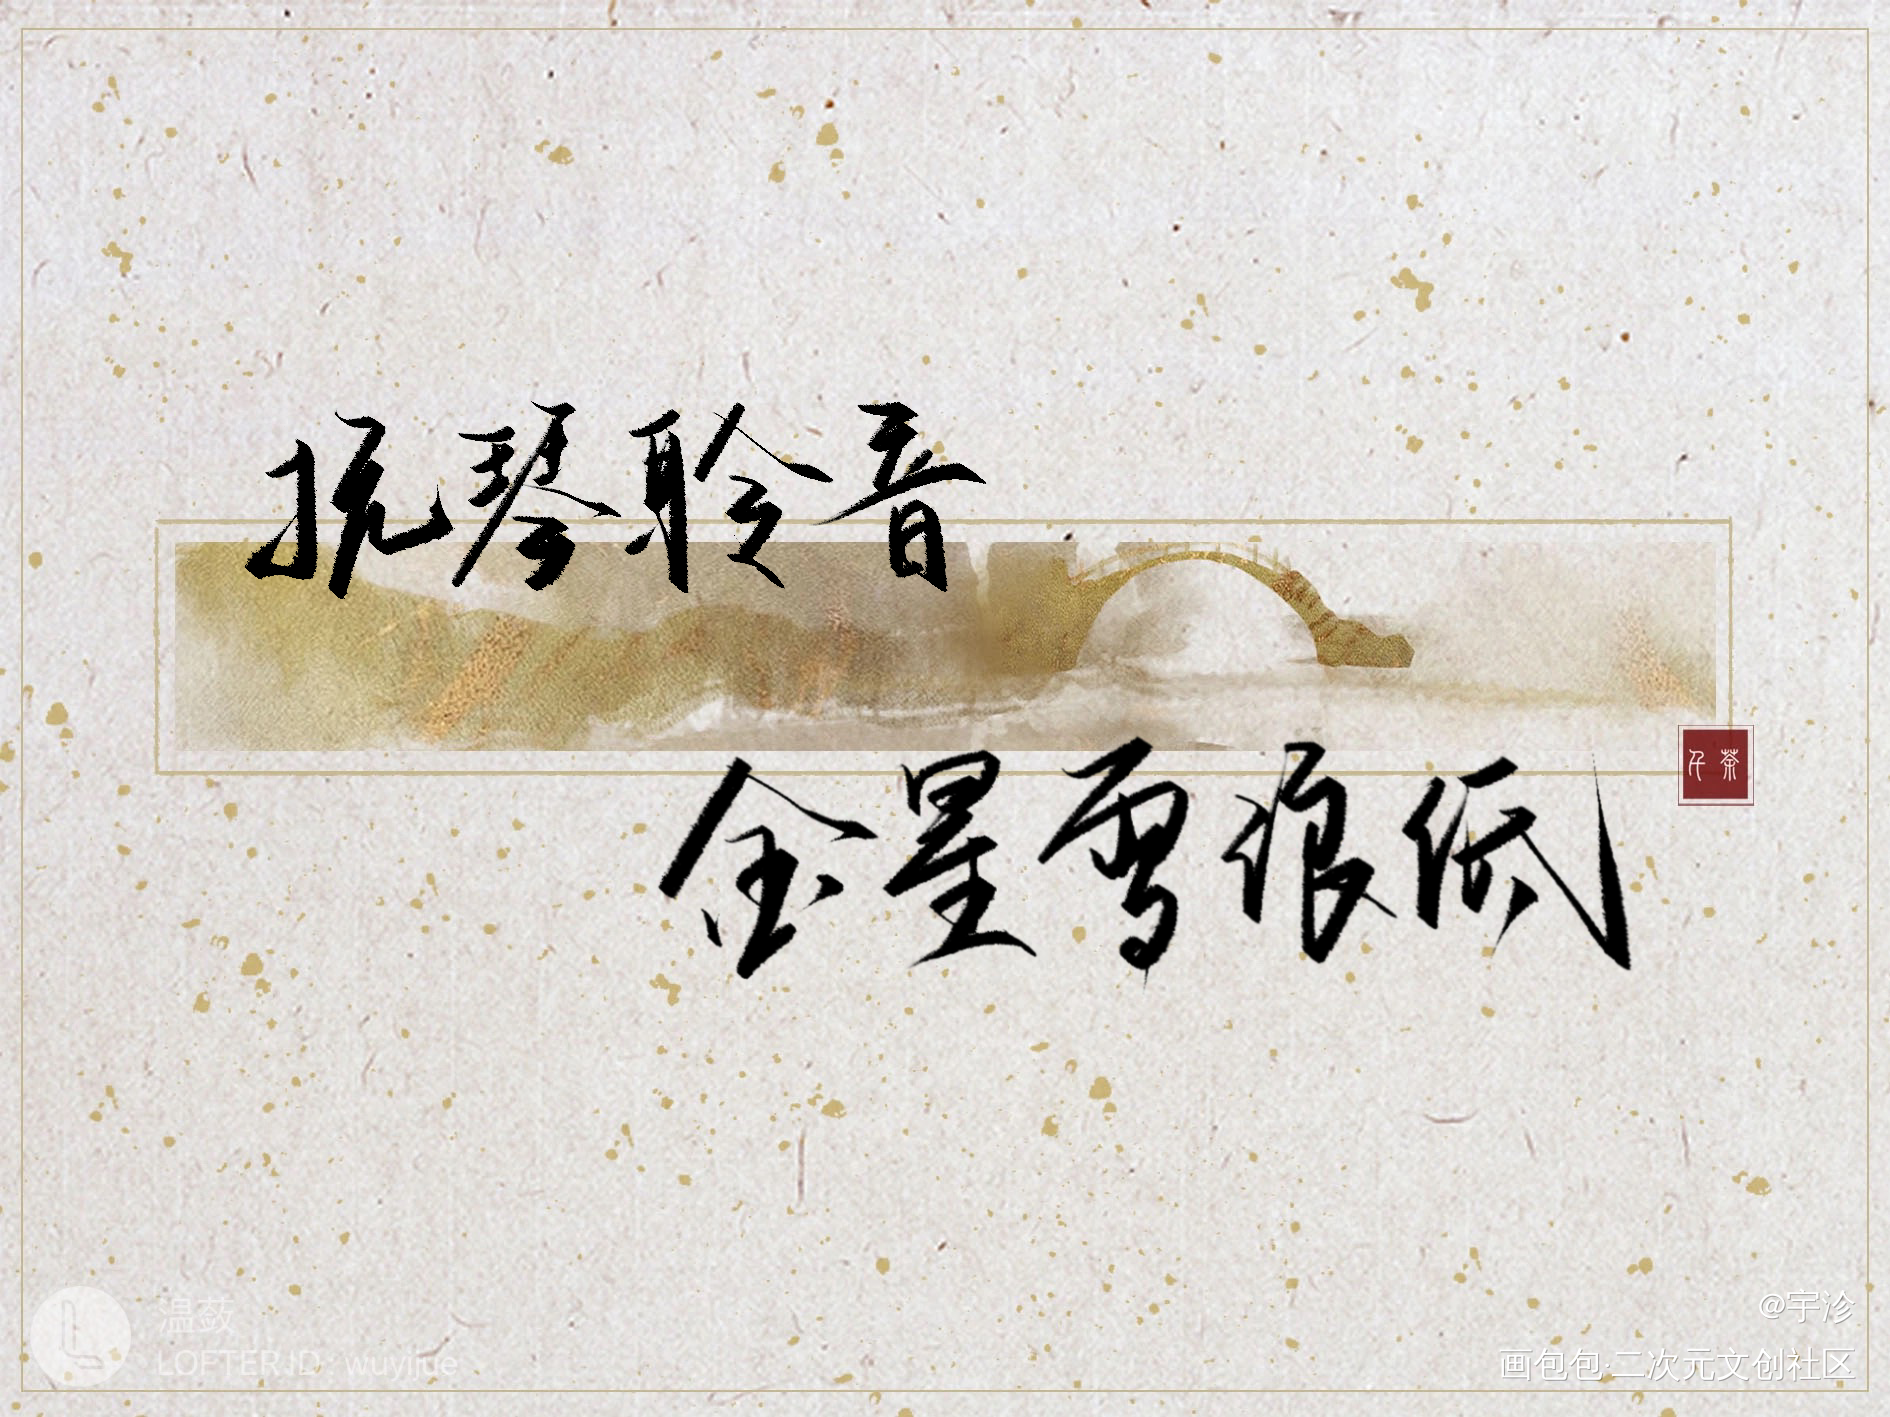 抚琴聆音
金星雪浪低
千茶
温薂
LOFTER ID: wuyijue
@宇沴
画包包·二次元文创社区